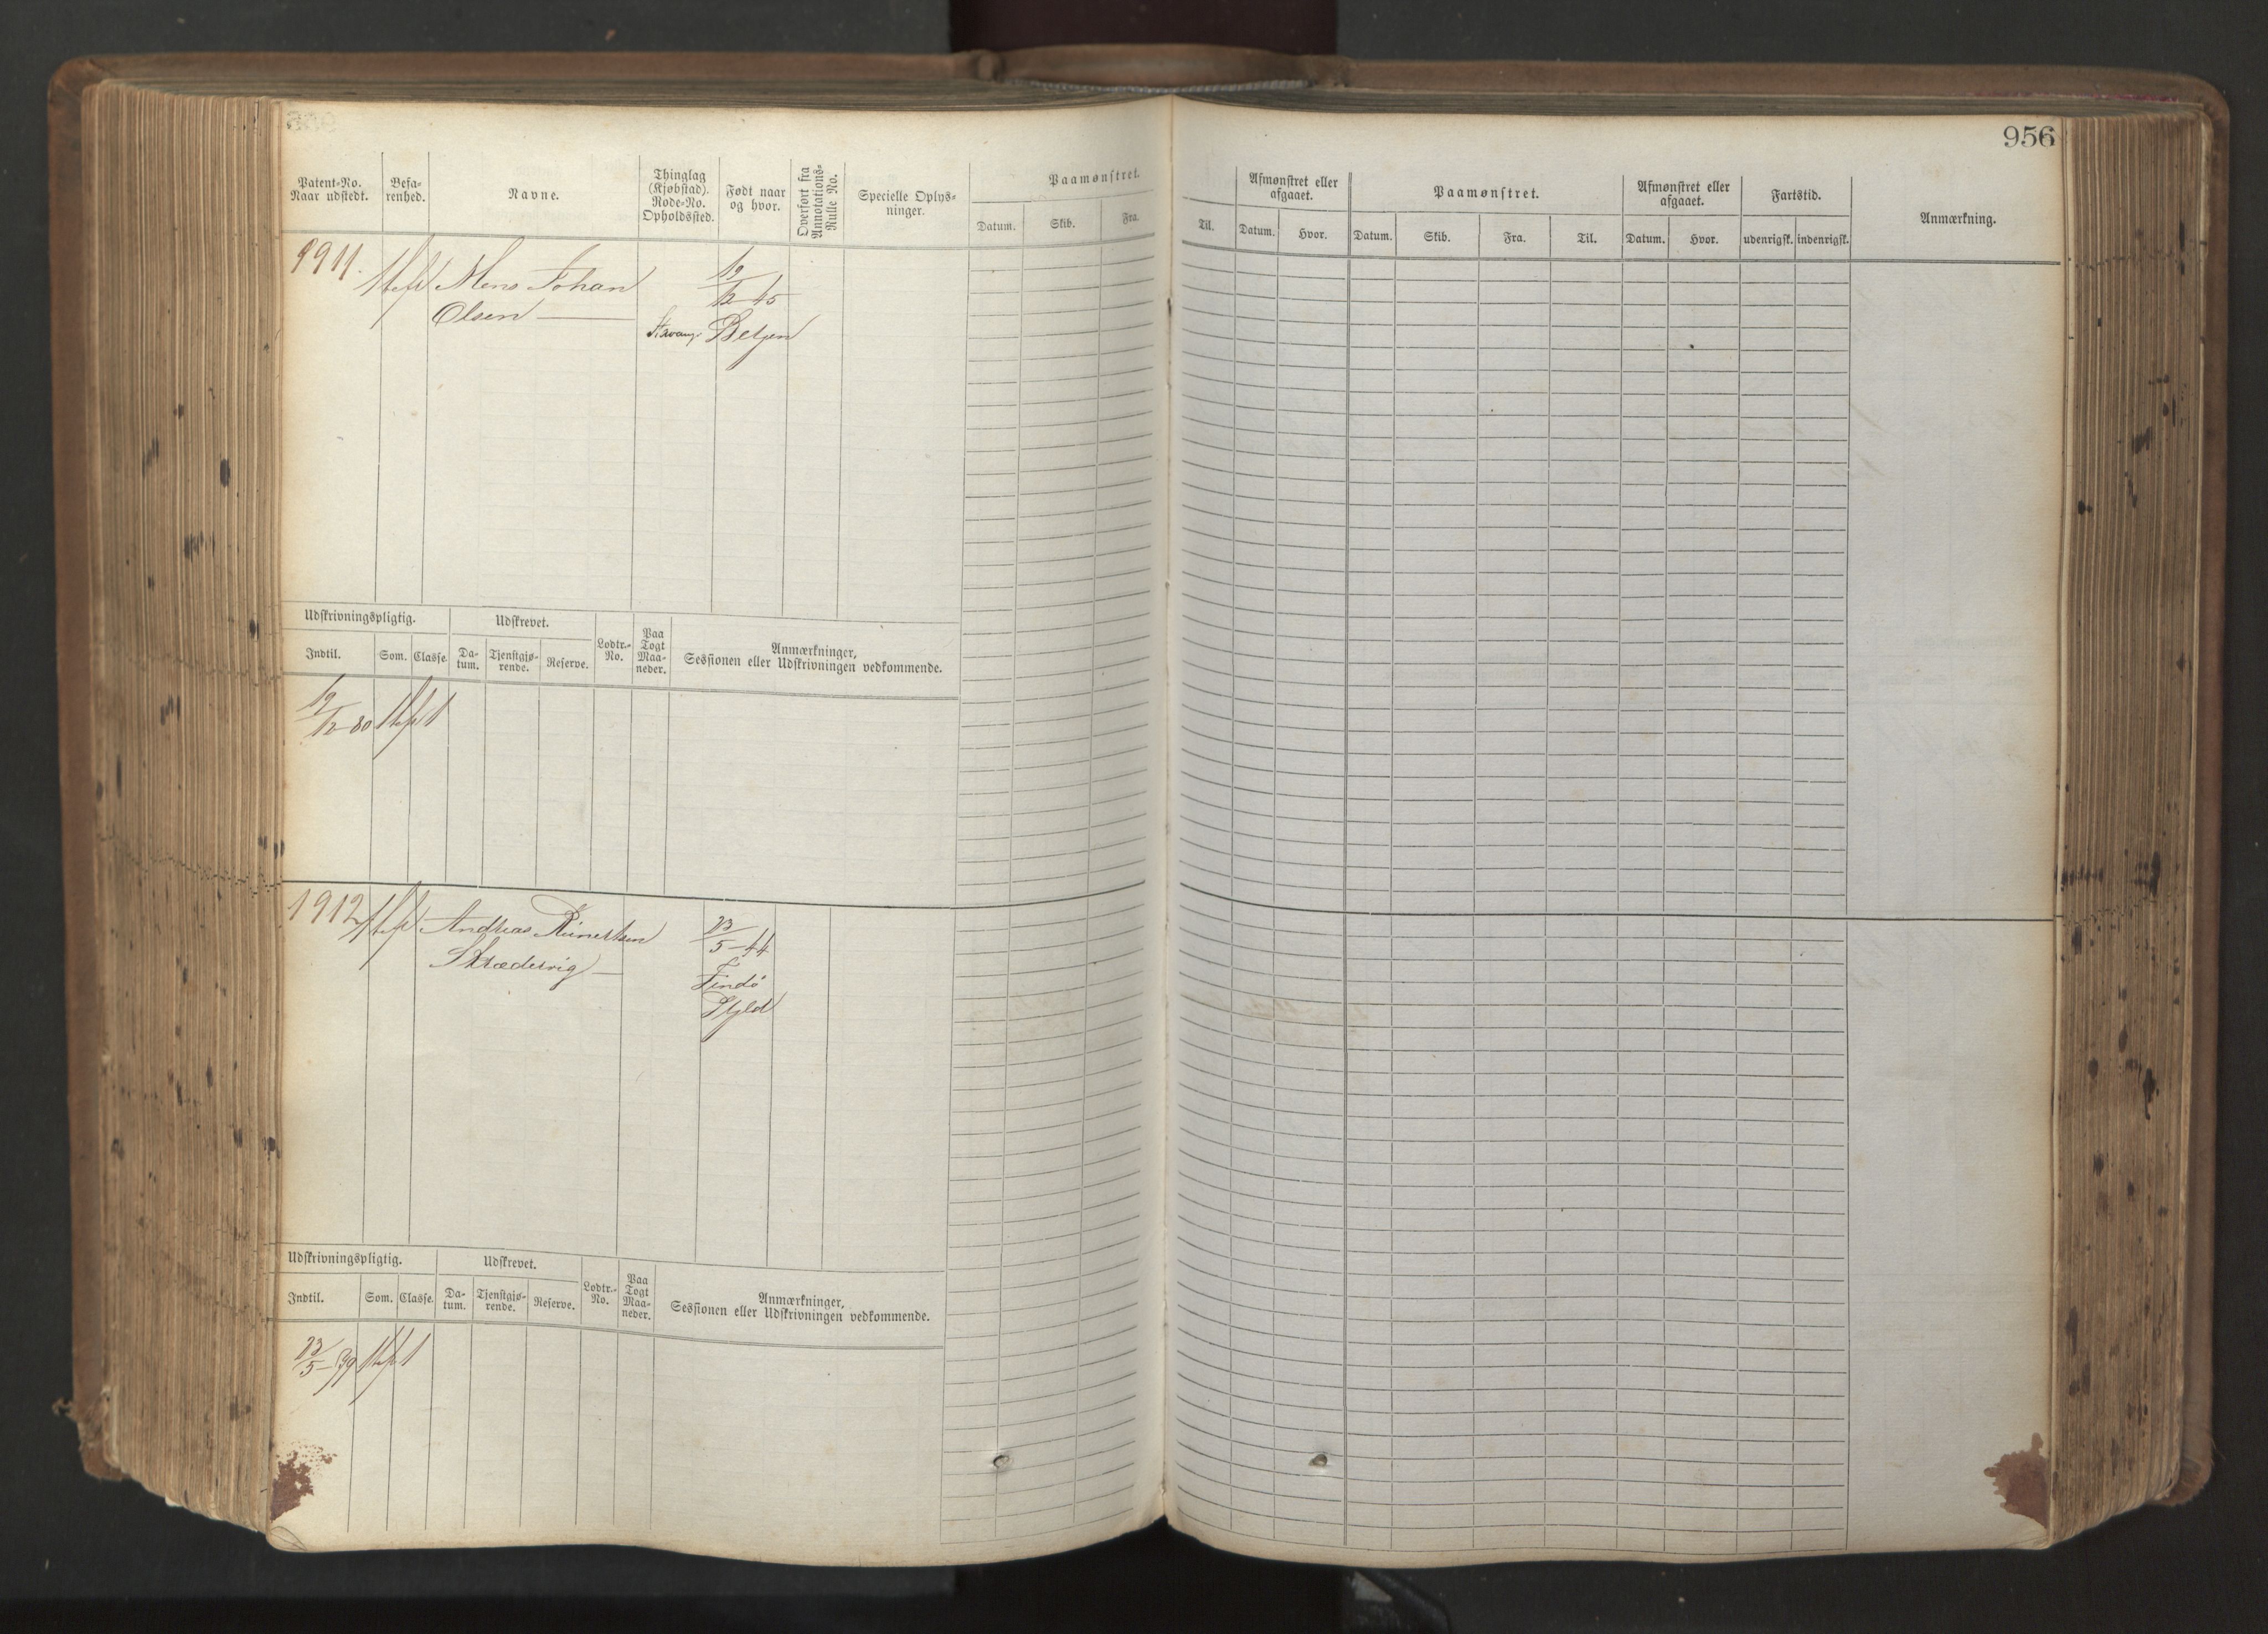 956
Patent-No.
Naar udstedt.
Befa-
renhed.
Navne.
Thinglag
(Kjøbstad).
Rode-No.
Opholdssted.
Født naar
og hvor.
Overført fra
Annotations-
Rulle No.
Specielle Oplys-
ninger.
Paamønstret.
Datum.
Skib.
Fra.
Til.
Afmønstret eller
afgaaet.
Datum.
Hvor.
Paamønstret.
Datum.
Skib.
Fra.
Til.
Afmønstret eller
afgaaet.
Datum.
Hvor.
Fartstid.
udenrigsk.
indenrigsk.
Anmærkning.
1911.
Mons Johan
Olsen
19/12 45
Bergen
Udskrivningspligtig.
Indtil.
Som.
Classe.
Udskrevet.
Da-
tum.
Tjenstgjø-
rende.
Reserve.
Lodtr.-
No.
Paa
Togt
Maa-
neder.
Anmærkninger,
Sessionen eller Udskrivningen vedkommende.
19/12-80
1
1912
Andreas
23/5-44
Findö
Udskrivningspligtig.
Indtil.
Som.
Classe.
Udskrevet.
Da-
tum.
Tjenstgjø-
rende.
Reserve.
Lodtr.-
No.
Paa
Togt
Maa-
neder.
Anmærkninger,
Sessionen eller Udskrivningen vedkommende.
23/5-79
1